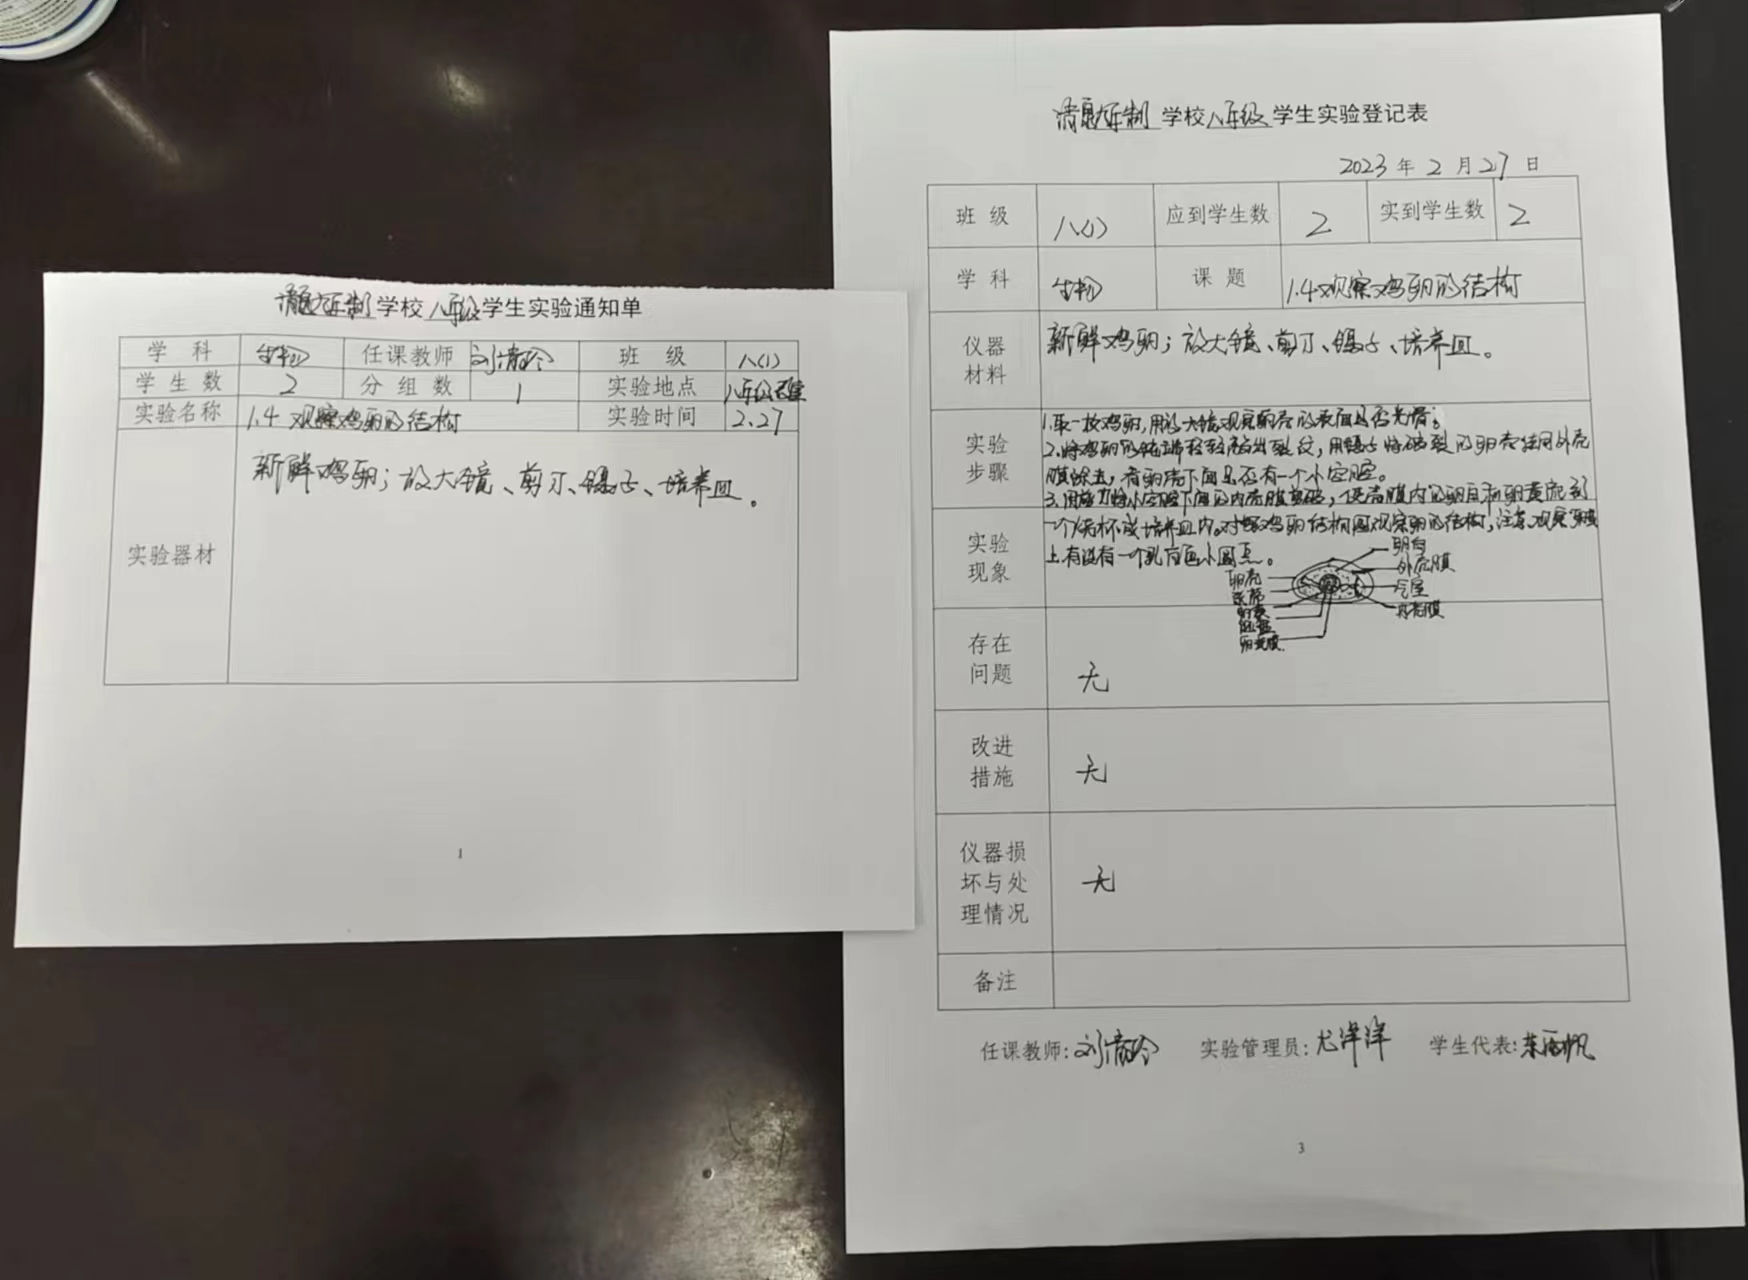 学校八年级学生实验通知单
学科 生物 任课教师 刘清玲 班级 八(1)
学生数 2 分组数 1 实验地点 八年级
实验名称 1.4 观察鸡卵的结构 实验时间 2.27
实验器材 新鲜鸡卵；放大镜、剪刀、镊子、培养皿。
1
学校八年级学生实验登记表
2023年2月27日
班级 八(1) 应到学生数 2 实到学生数 2
学科 生物 课题 1.4观察鸡卵的结构
仪器材料 新鲜鸡卵；放大镜、剪刀、镊子、培养皿。
实验步骤
1.取一枚鸡卵，用放大镜观察卵壳的表面是否光滑；
2.将鸡卵的钝端轻轻敲出裂纹，用镊子将破裂的卵壳连同外壳
膜除去，看卵壳下面是否有一个小空腔。
3.用剪刀将小空腔下面的内壳膜剪破，使壳膜内的卵白和卵黄流到
一个烧杯或培养皿内。对照鸡卵结构图观察卵的结构，注意观察卵黄
上有没有一个乳白色小圆点。
实验现象
卵白
外壳膜
气室
内壳膜
卵壳
系带
卵黄
胚盘
卵黄膜
存在问题 无
改进措施 无
仪器损坏与处理情况 无
备注
任课教师：刘清玲 实验管理员：尤洋洋 学生代表：
3